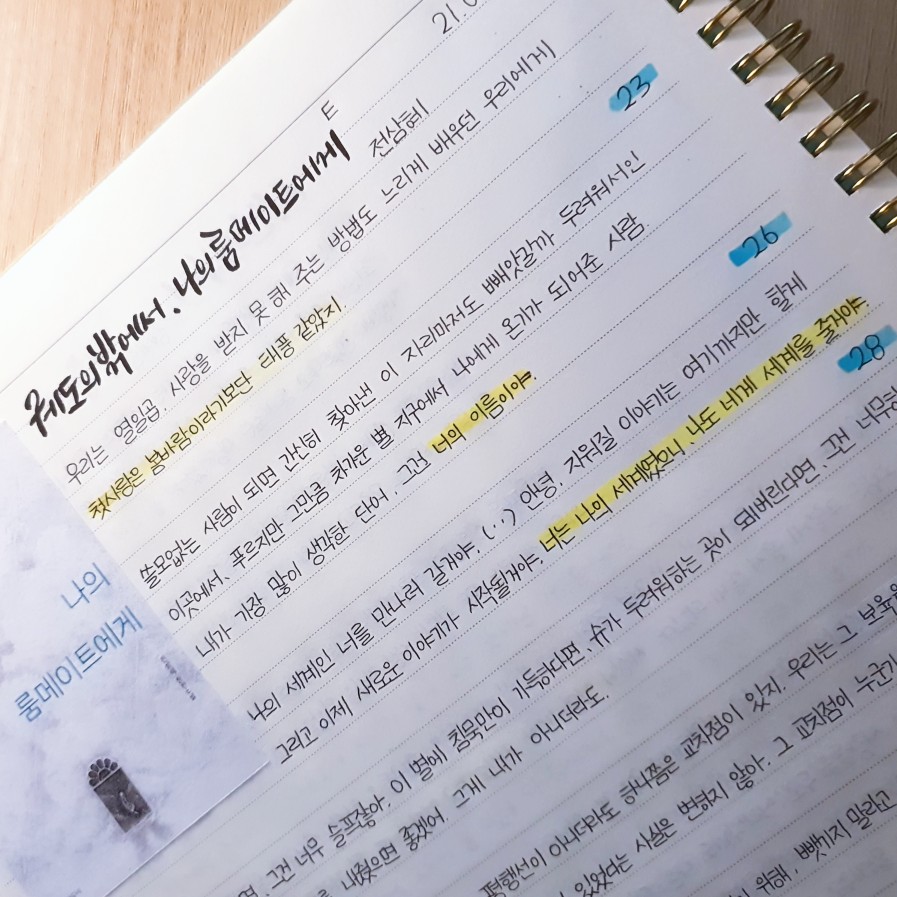 21.0
궤도의 밖에서, 나의 룸메이트에게 전삼혜
E
23
우리는 열일곱. 사랑을 받지 못 해 주는 방법도 느리게 배우던 우리에게
첫사랑은 봄바람이라기보단 태풍 같았지.
26
쓸모없는 사람이 되면 간신히 찾아낸 이 자리마저도 빼앗길까 두려워서인
이곳에서, 푸르지만 그만큼 차가운 별 지구에서 나에게 온기가 되어준 사람.
내가 가장 많이 생각한 단어. 그건 너의 이름이야.
28
나의 세계인 너를 만나러 갈거야. (··) 안녕. 지워질 이야기는 여기까지만 할게
그리고 이제 새로운 이야기가 시작될거야. 너는 나의 세계였으니, 나도 네게 세계를 줄거야.
그건 너무 슬프잖아. 이 별에 침묵만이 가득하다면, 슈가 두려워하는 곳이 되버린다면, 그건 너무
를 내줬으면 좋겠어. 그게 내가 아니더라도.
평행선이 아니더라도 하나쯤은 교차점이 있지. 우리는 그
있었다는 사실은 변하지 않아. 그 교차점이 누군가
위해, 빼앗기지 말라고
나의
룸메이트에게